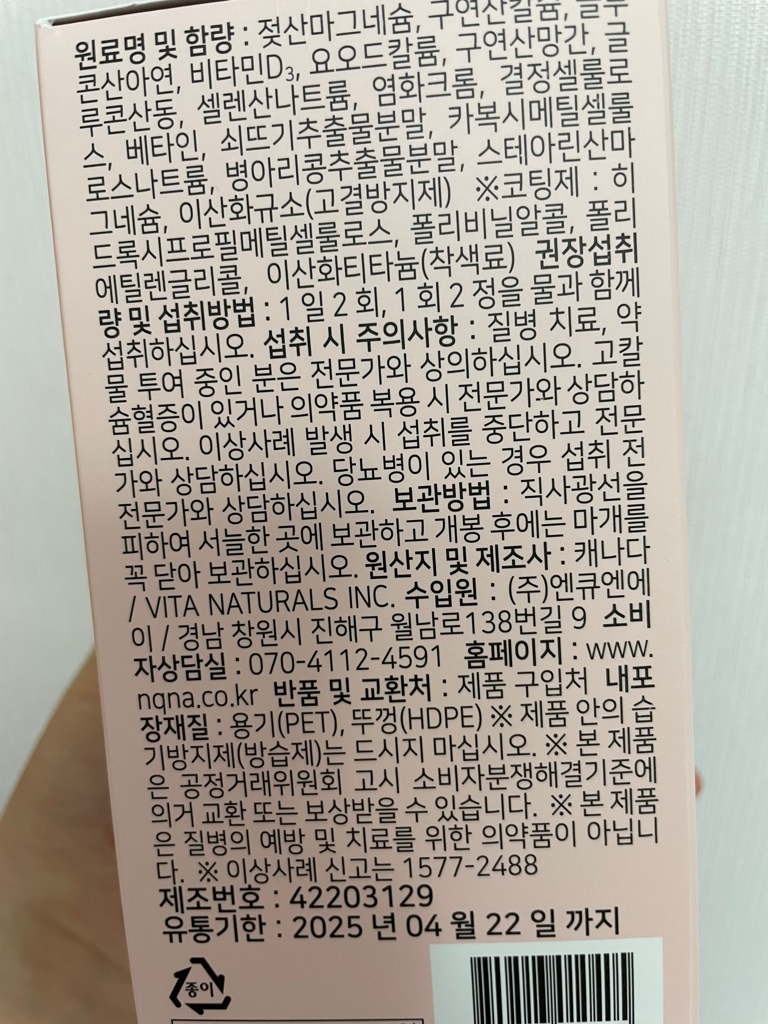 원료명 및 함량 : 젖산마그네슘, 구연산칼슘, 글루
콘산아연, 비타민D₃, 요오드칼륨, 구연산망간, 글
루콘산동, 셀렌산나트륨, 염화크롬, 결정셀룰로
스, 베타인, 쇠뜨기추출물분말, 카복시메틸셀룰
로스나트륨, 병아리콩추출물분말, 스테아린산마
그네슘, 이산화규소(고결방지제) ※코팅제 : 히
드록시프로필메틸셀룰로스, 폴리비닐알콜, 폴리
에틸렌글리콜, 이산화티타늄(착색료) 권장섭취
량 및 섭취방법 : 1 일 2 회, 1 회 2 정을 물과 함께
섭취하십시오. 섭취 시 주의사항 : 질병 치료, 약
물 투여 중인 분은 전문가와 상의하십시오. 고칼
슘혈증이 있거나 의약품 복용 시 전문가와 상담하
십시오. 이상사례 발생 시 섭취를 중단하고 전문
가와 상담하십시오. 당뇨병이 있는 경우 섭취 전
전문가와 상담하십시오. 보관방법 : 직사광선을
피하여 서늘한 곳에 보관하고 개봉 후에는 마개를
꼭 닫아 보관하십시오. 원산지 및 제조사 : 캐나다
/ VITA NATURALS INC. 수입원 : (주)엔큐엔에
이 / 경남 창원시 진해구 월남로138번길 9 소비
자상담실 : 070-4112-4591 홈페이지 : www.
nqna.co.kr 반품 및 교환처 : 제품 구입처 내포
장재질 : 용기(PET), 뚜껑(HDPE) ※ 제품 안의 습
기방지제(방습제)는 드시지 마십시오. ※ 본 제품
은 공정거래위원회 고시 소비자분쟁해결기준에
의거 교환 또는 보상받을 수 있습니다. ※ 본 제품
은 질병의 예방 및 치료를 위한 의약품이 아닙니
다. ※ 이상사례 신고는 1577-2488
제조번호 : 42203129
유통기한 : 2025 년 04 월 22 일 까지
종이